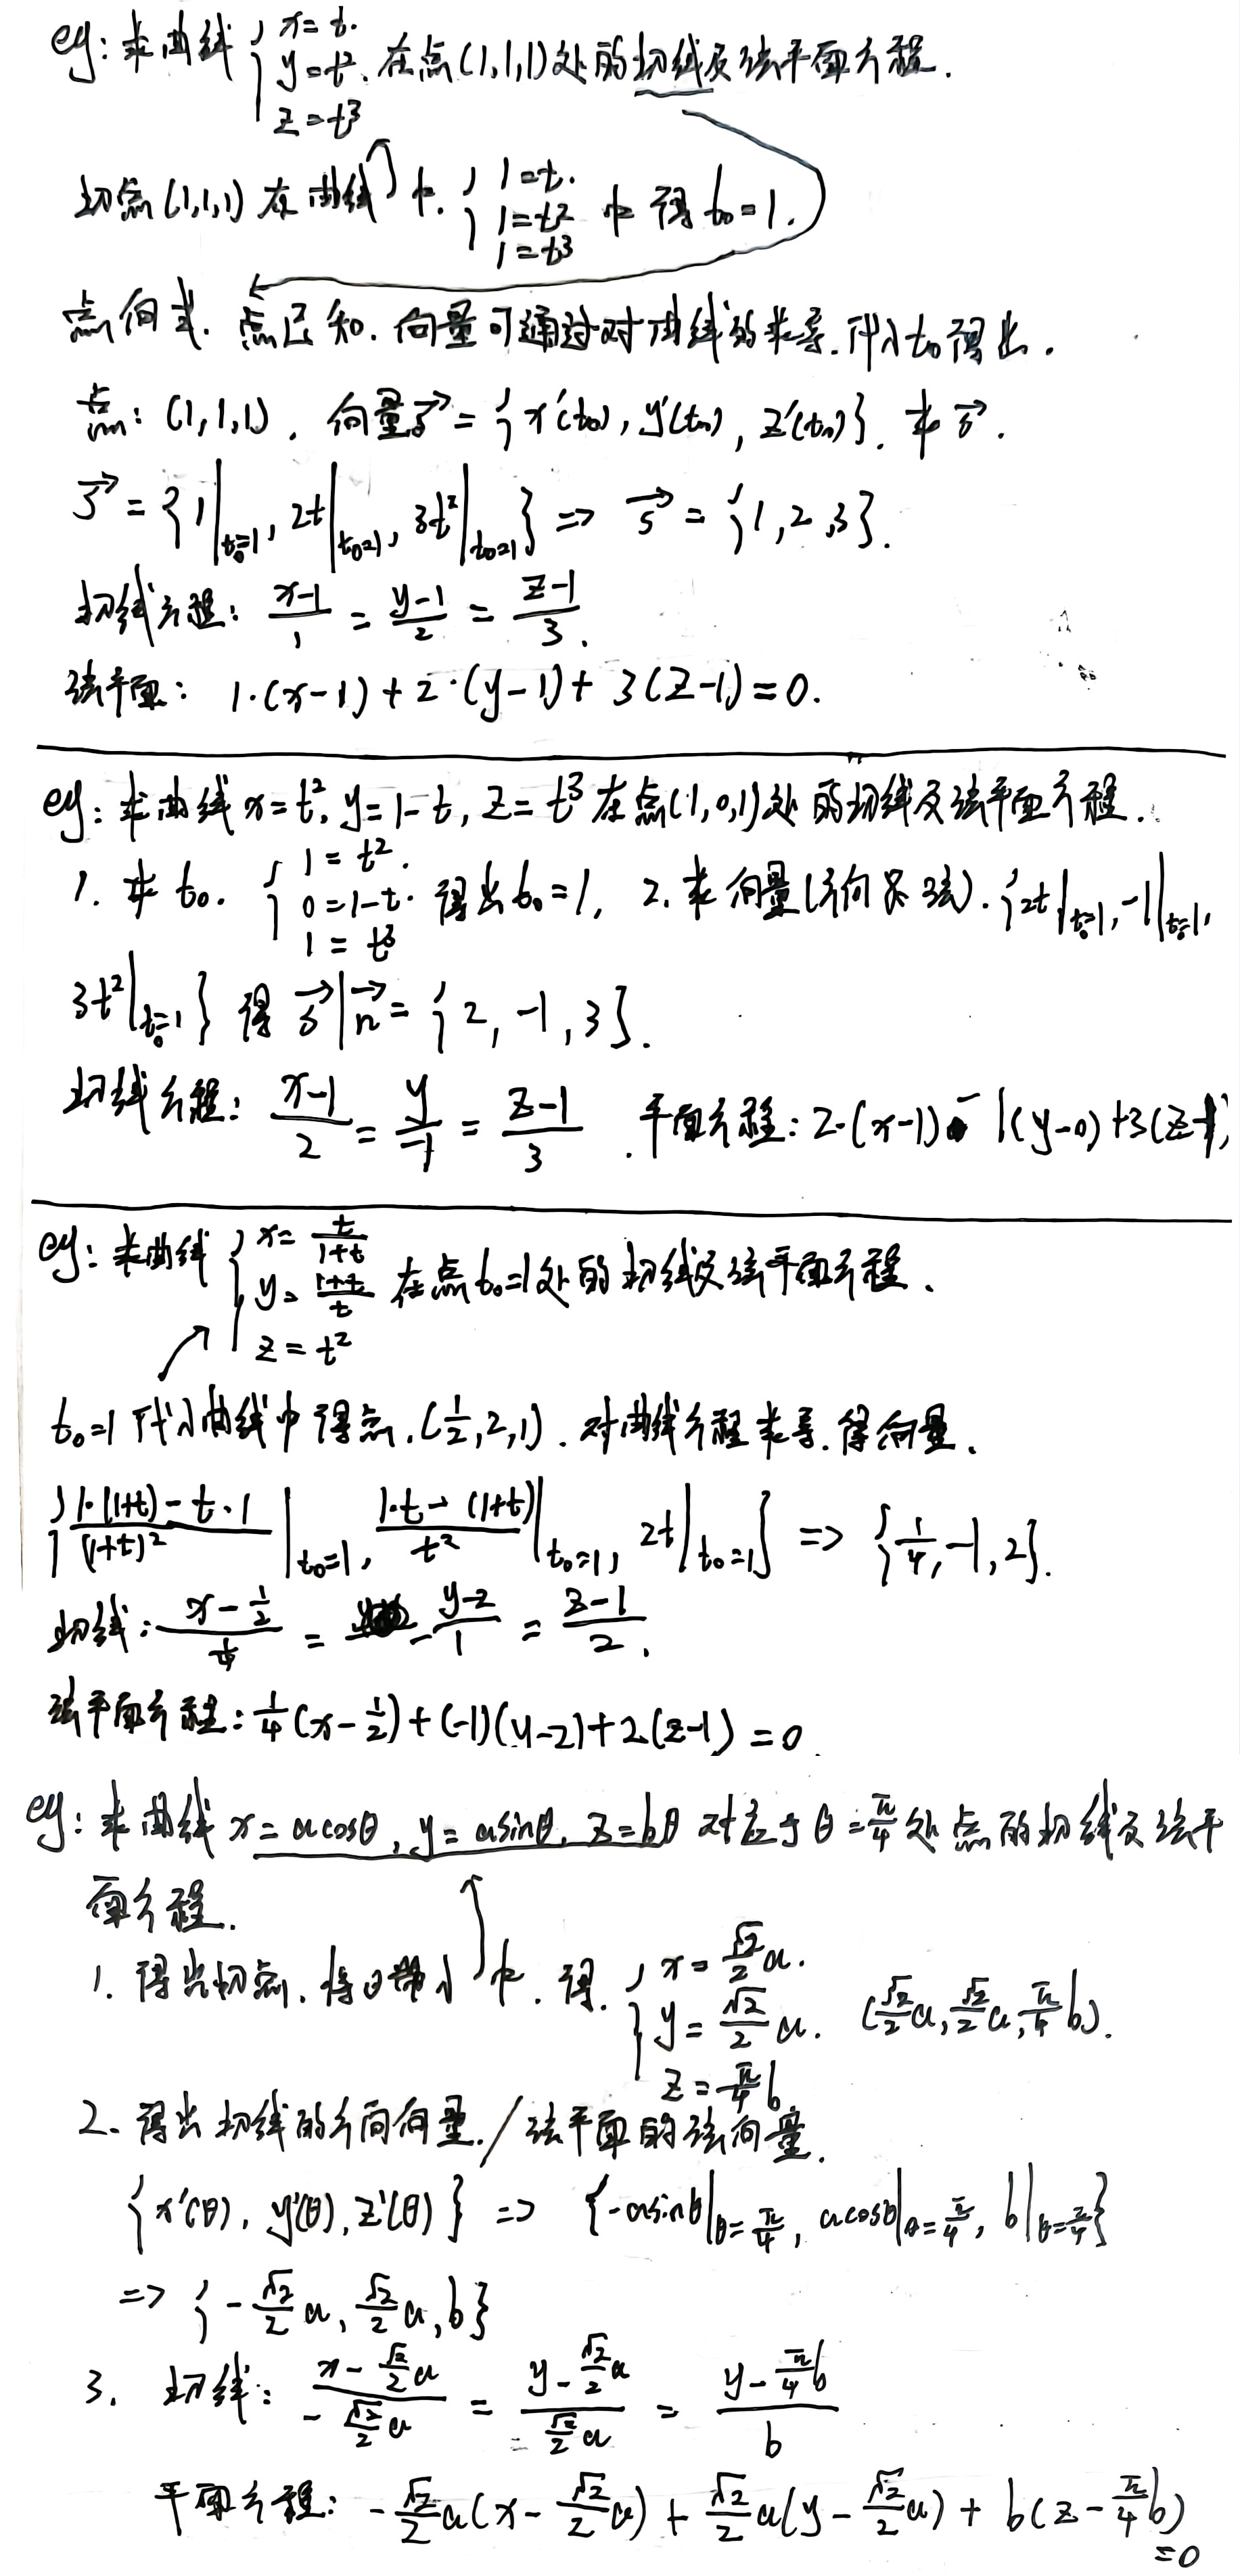 eg: 求曲线 { x=t. y=t². z=t³ 在点(1,1,1)处的切线及法平面方程.
切点(1,1,1)在曲线中. { 1=t. 1=t² 1=t³ 中得t₀=1.
点向式. 点已知. 向量可通过对曲线的求导.代入t₀得出.
点: (1,1,1), 向量s⃗ = {x'(t₀), y'(t₀), z'(t₀)}. 求s⃗.
s⃗ = {1|t₀=1, 2t|t₀=1, 3t²|t₀=1} => s⃗ = {1,2,3}.
切线方程: (x-1)/1 = (y-1)/2 = (z-1)/3.
法平面: 1·(x-1)+2·(y-1)+3(z-1)=0.
eg: 求曲线x=t², y=1-t, z=t³在点(1,0,1)处的切线及法平面方程.
1. 求t₀. { 1=t². 0=1-t. 1=t³ 得出t₀=1, 2. 求向量(方向及法). {2t|t₀=1, -1|t₀=1,
3t²|t₀=1} 得 s⃗|n⃗ = {2, -1, 3}.
切线方程: (x-1)/2 = y/-1 = (z-1)/3. 平面方程: 2·(x-1) - 1(y-0)+3(z-1)
eg: 求曲线 { x= t/(1+t) y= (1+t)/t z=t² 在点t₀=1处的切线及法平面方程.
t₀=1代入曲线中得点.(1/2,2,1). 对曲线方程求导.得向量.
{ (1·(1+t)-t·1)/(1+t)² |t₀=1, (1·t-(1+t))/t² |t₀=1, 2t|t₀=1} => {1/4,-1,2}.
切线: (x-1/2)/(1/4) = -(y-2)/1 = (z-1)/2.
法平面方程: 1/4(x-1/2)+(-1)(y-2)+2(z-1)=0.
eg: 求曲线x=acosθ, y=asinθ, z=bθ 对应于θ=π/4处点的切线及法平
面方程.
1. 得出切点. 将θ带入中. 得. { x=√2/2 a. y=√2/2 a. z=π/4 b (√2/2 a, √2/2 a, π/4 b).
2. 得出切线的方向向量./法平面的法向量.
{x'(θ), y'(θ), z'(θ)} => {-asinθ|θ=π/4, acosθ|θ=π/4, b|θ=π/4}
=> {-√2/2 a, √2/2 a, b}
3. 切线: (x-√2/2 a)/(-√2/2 a) = (y-√2/2 a)/(√2/2 a) = (y-π/4 b)/b
平面方程: -√2/2 a(x-√2/2 a) + √2/2 a(y-√2/2 a) + b(z-π/4 b)
=0